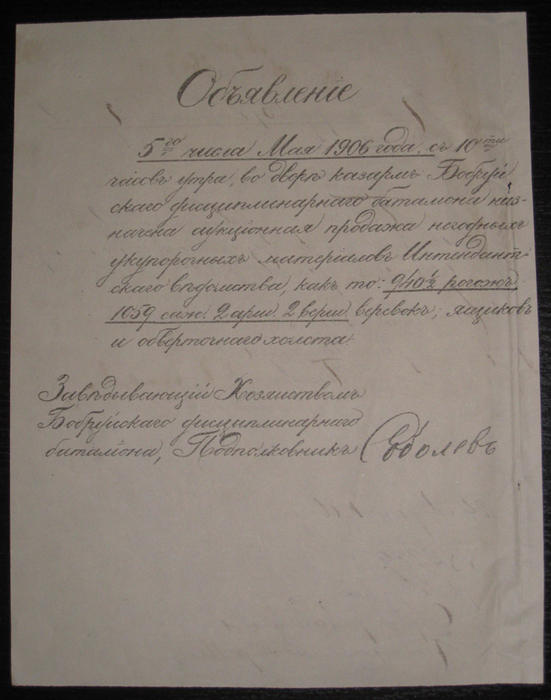 Объявленіе
5го числа Мая 1906 года, съ 10ти
часовъ утра, во дворѣ казармъ Бобруй-
скаго дисциплинарнаго баталіона наз-
начена аукціонная продажа негодныхъ
укупорочныхъ матеріаловъ Интендант-
скаго вѣдомства, какъ то: 940½ рогожъ
1059 саж. 2 арш. 2 верш. веревокъ, ящиковъ
и оберточнаго холста.
Завѣдывающій Хозяйствомъ
Бобруйскаго дисциплинарнаго
баталіона, Подполковникъ Соболевъ